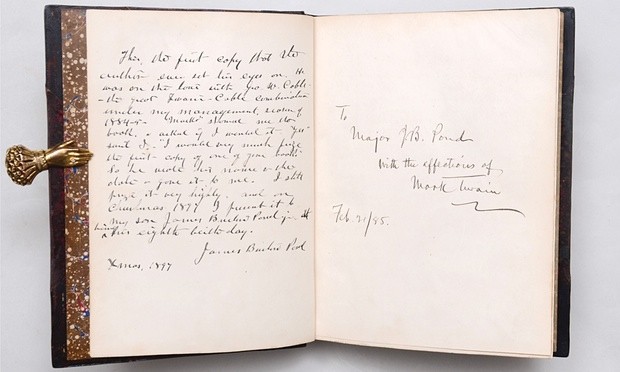 This, the first copy that the
author ever set his eyes on. He
was on the tour with Geo. W. Cable
- the great Twain-Cable combination
under my management, season of
1884-5- "Mark" showed me the
book, & asked if I would it. Yes
said I. "I would very much prize
the first copy of one of your books"
So he wrote his name & the
date & gave it to me. I still
prize it very highly, and on
Christmas 1897 I present it to
my son James Burton Pond jr. at
his eighth birthday.
James Burton Pond
Xmas, 1897
To
Major J.B. Pond
with the affections of
Mark Twain
Feb. 21/85.